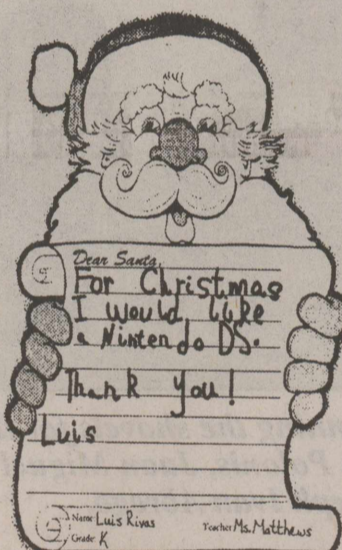 Dear Santa,
For Christmas
I would like
a Nintendo DS.
Thank you!
Luis
Name Luis Rivas
Teacher Ms. Matthews
Grade K